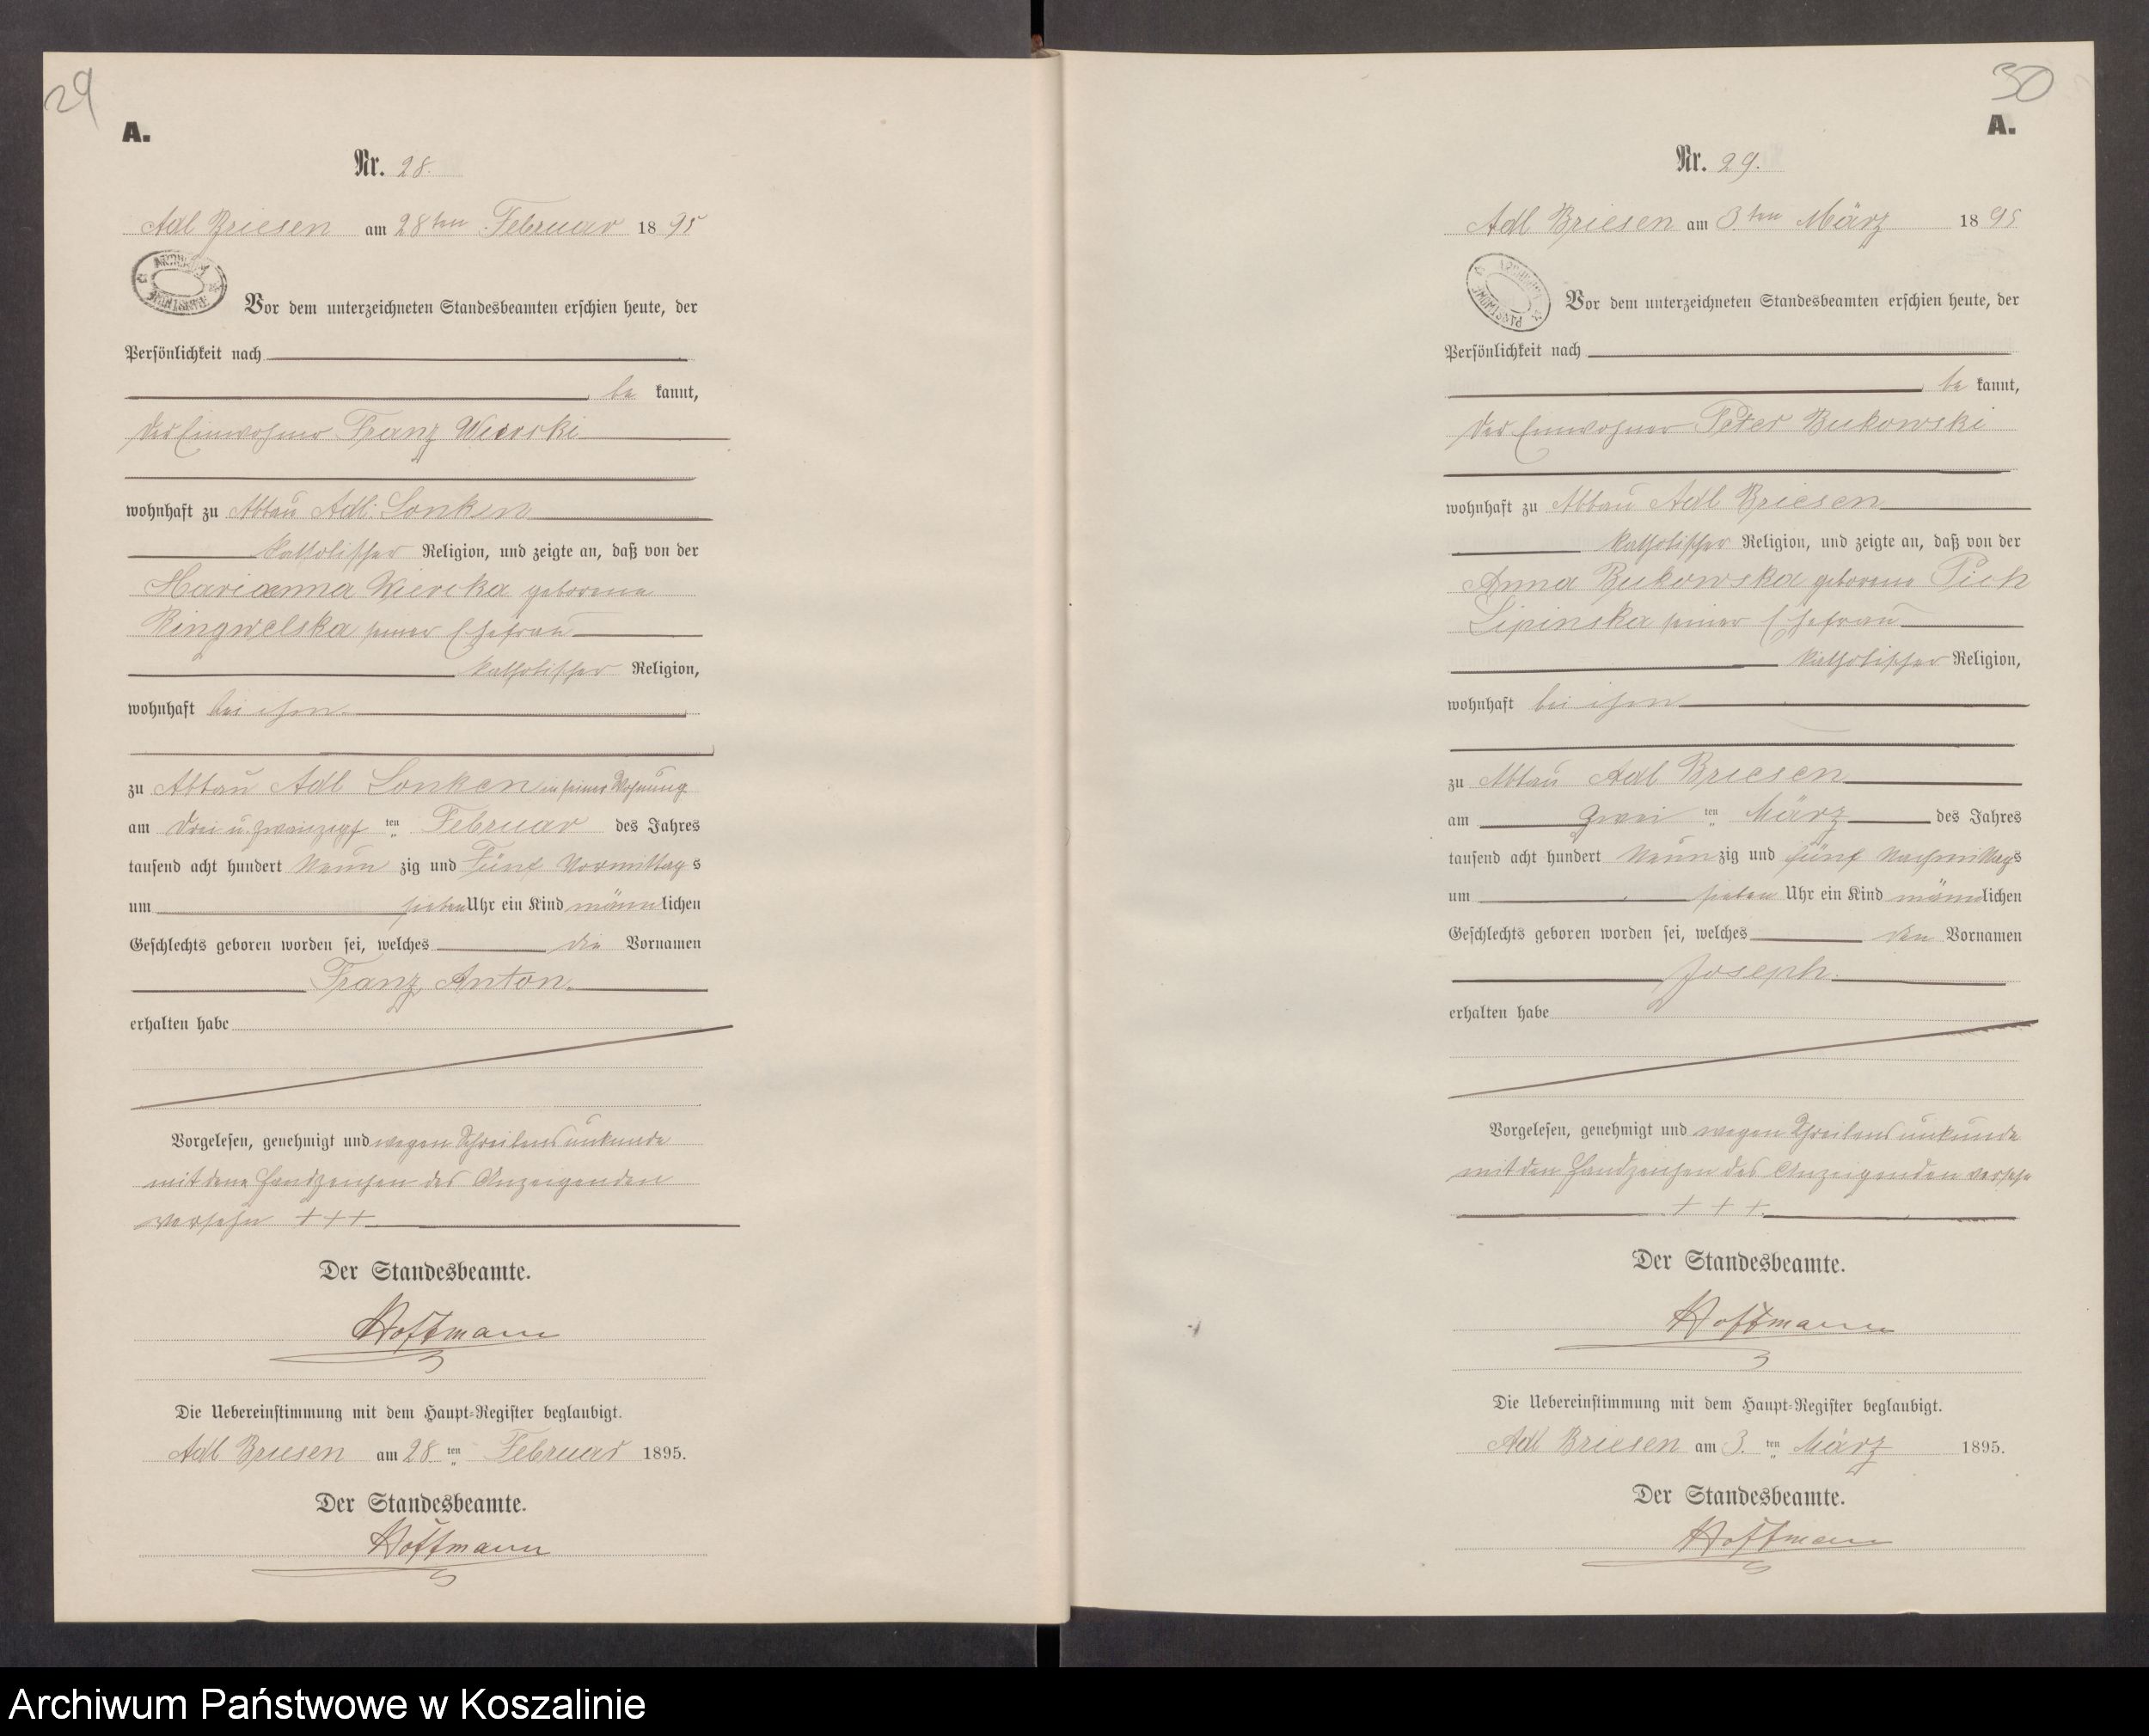 29
A.
Nr. 28.
Adl Briesen am 28ten Februar 1895
ARCHIWUM PAŃSTWOWE
Vor dem unterzeichneten Standesbeamten erschien heute, der
Persönlichkeit nach
be kannt,
der Einwohner Franz
wohnhaft zu Abbau Adl. Lonken
katholischer Religion, und zeigte an, daß von der
Marianna Wiercka geborene
Ringwelska seiner Ehefrau
katholischer Religion,
wohnhaft bei ihm
zu Abbau Adl Lonken in seiner Wohnung
am drei u. zwanzigsten Februar des Jahres
tausend acht hundert Neun zig und Fünf Vormittags
um sieben Uhr ein Kind männlichen
Geschlechts geboren worden sei, welches die Vornamen
Franz Anton.
erhalten habe
Vorgelesen, genehmigt und wegen Schreibensunkunde
mit dem Handzeichen des Anzeigenden
versehn +++
Der Standesbeamte.
Hoffmann
Die Uebereinstimmung mit dem Haupt-Register beglaubigt.
Adl Briesen am 28.ten Februar 1895.
Der Standesbeamte.
Hoffmann
30
A.
Nr. 29.
Adl Briesen am 3ten März 1895
ARCHIWUM PAŃSTWOWE
Vor dem unterzeichneten Standesbeamten erschien heute, der
Persönlichkeit nach
be kannt,
der Einwohner Peter Bukowski
wohnhaft zu Abbau Adl Briesen
katholischer Religion, und zeigte an, daß von der
Anna Bukowska geborene Pich
Lipinska seiner Ehefrau
katholischer Religion,
wohnhaft bei ihm
zu Abbau Adl Briesen
am zwei ten März des Jahres
tausend acht hundert Neun zig und fünf Nachmittags
um sieben Uhr ein Kind männlichen
Geschlechts geboren worden sei, welches den Vornamen
Joseph.
erhalten habe
Vorgelesen, genehmigt und wegen Schreibensunkunde
mit den Handzeichen des Anzeigenden versehn
+ + +
Der Standesbeamte.
Hoffmann
Die Uebereinstimmung mit dem Haupt-Register beglaubigt.
Adl Briesen am 3. ten März 1895.
Der Standesbeamte.
Hoffmann
Archiwum Państwowe w Koszalinie